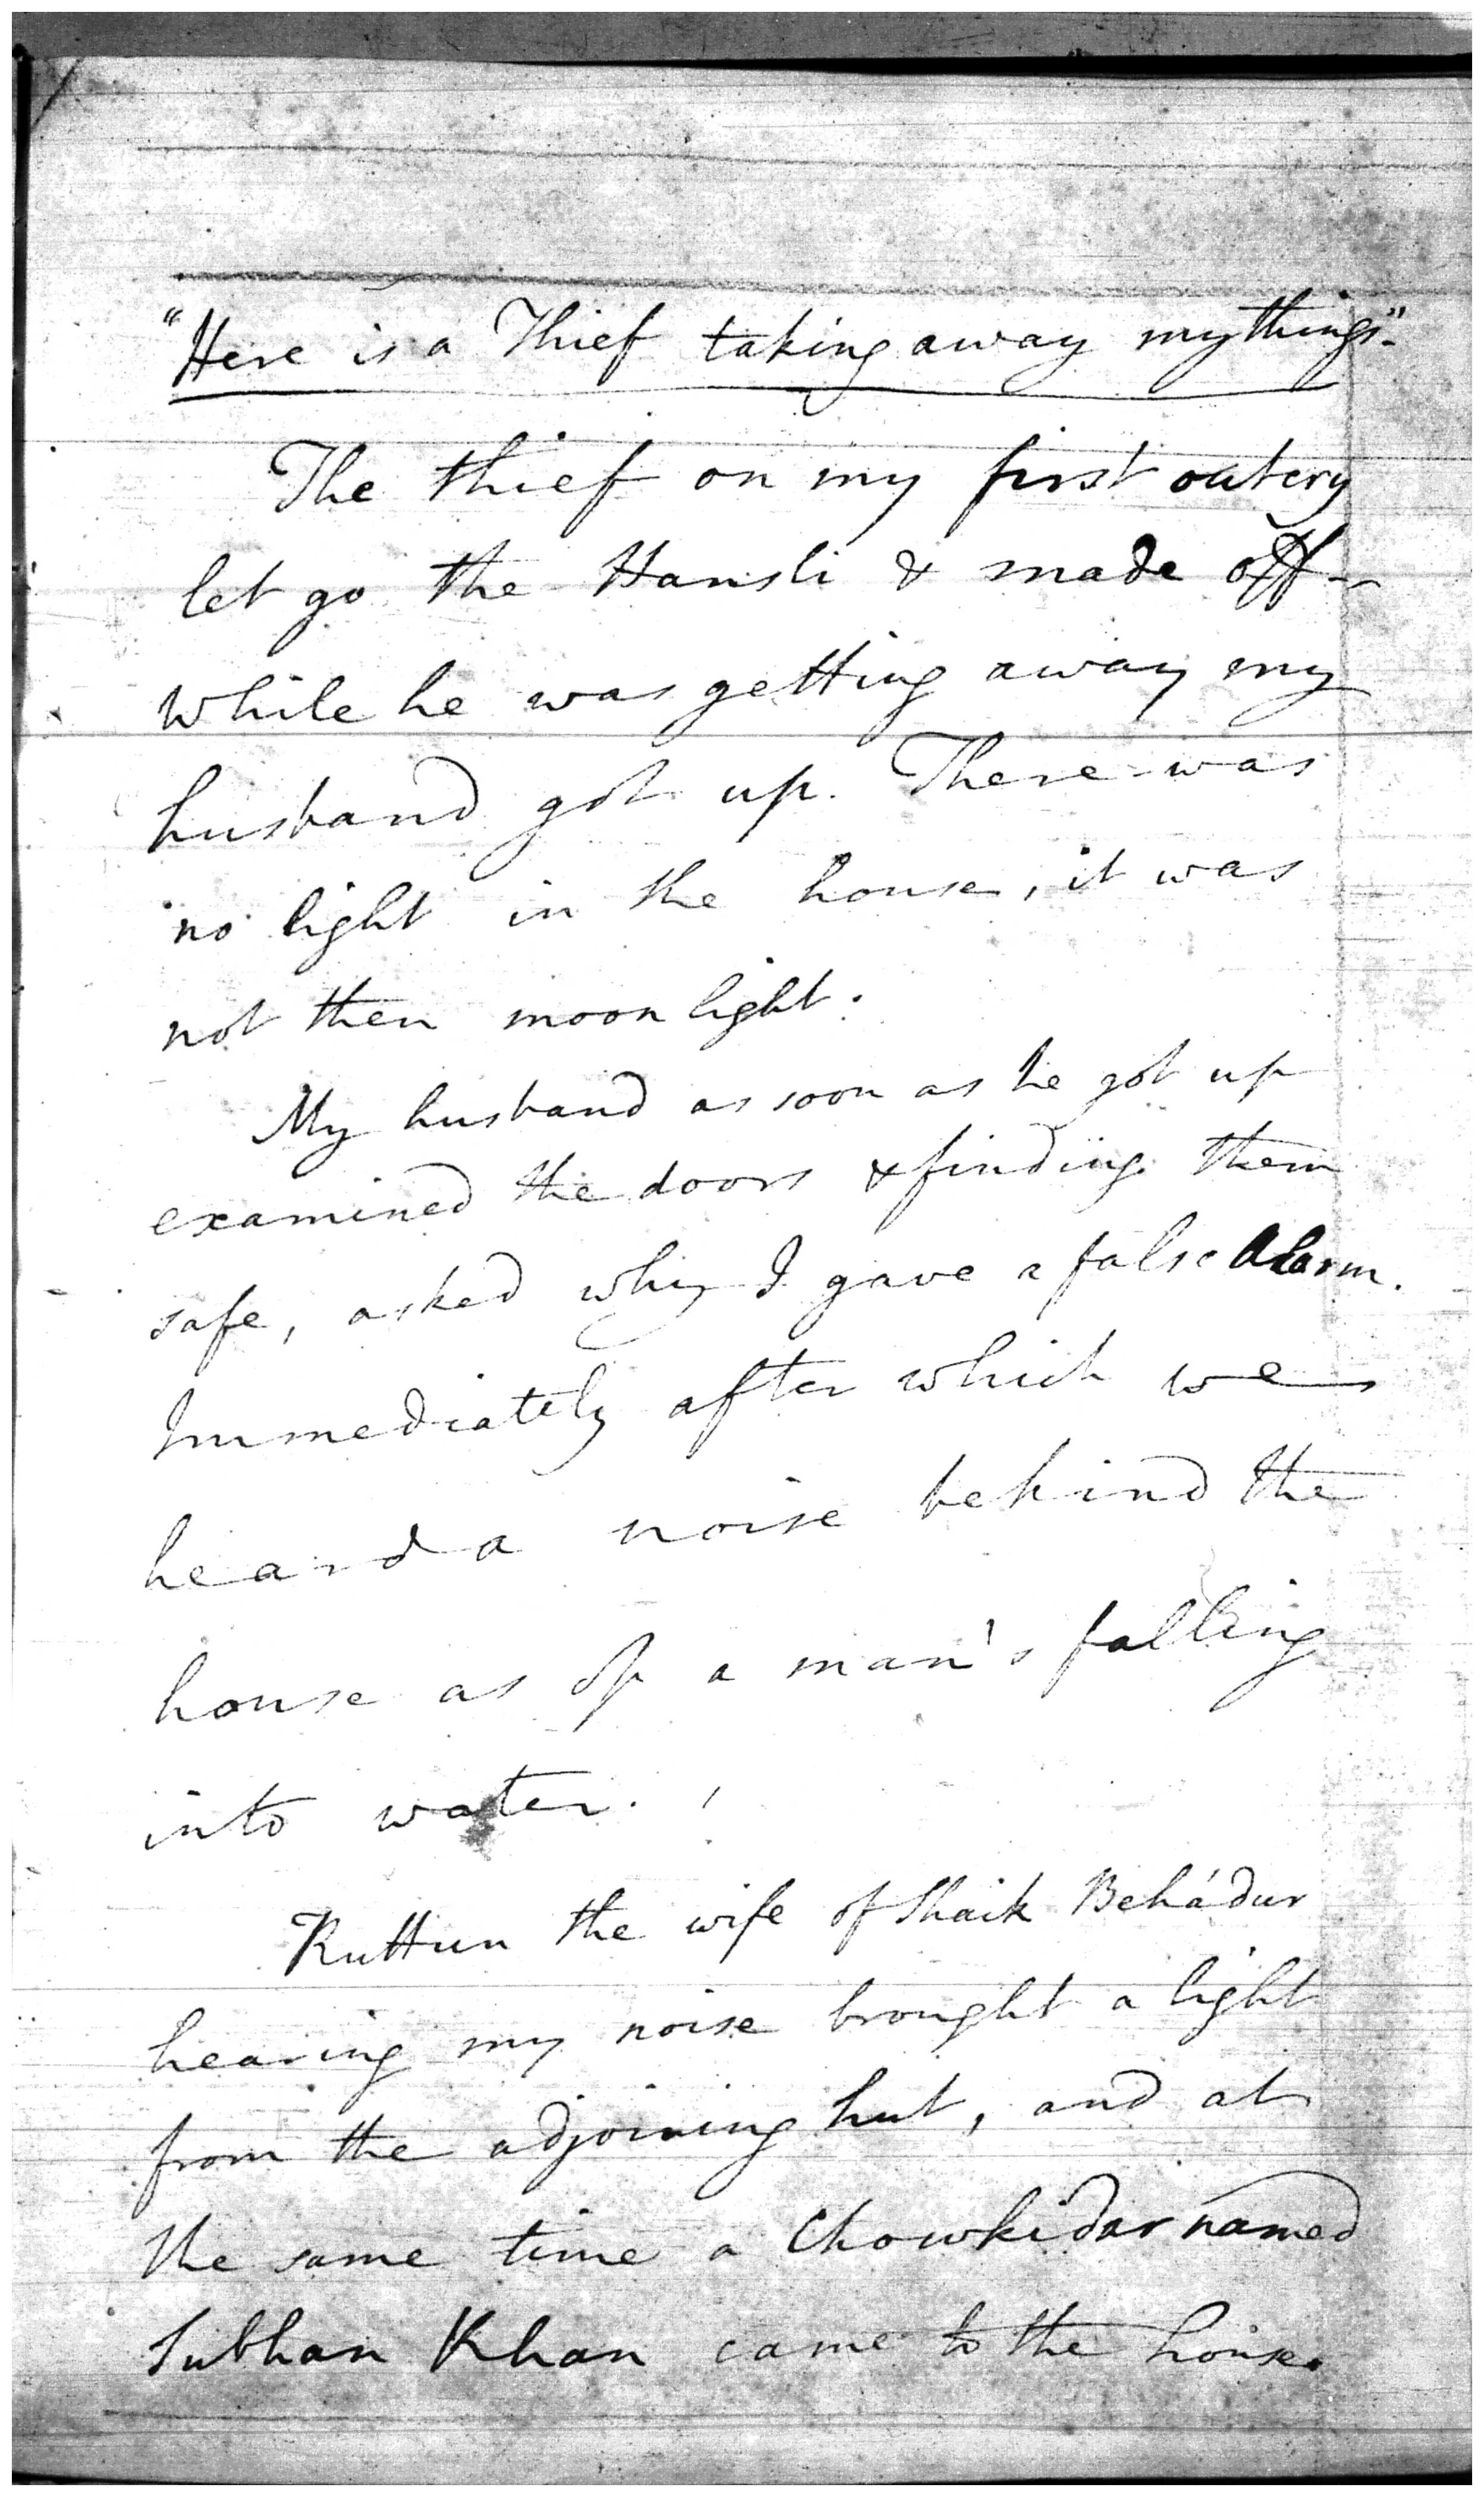 "Here is a Thief taking away my things"-
The thief on my first outcry
let go the Hansli & made off -
while he was getting away my
husband got up. There was
no light in the house, it was
not then moon light.
My husband as soon as he got up
examined the doors & finding them
safe, asked why I gave a false Alarm.
Immediately after which we
heard a noise behind the
house as of a man's falling
into water.
Ruttun the wife of Shaik Behádur
hearing my noise brought a light
from the adjoining hut, and at
the same time a Chowkidar named
Subhan Khan came to the house.